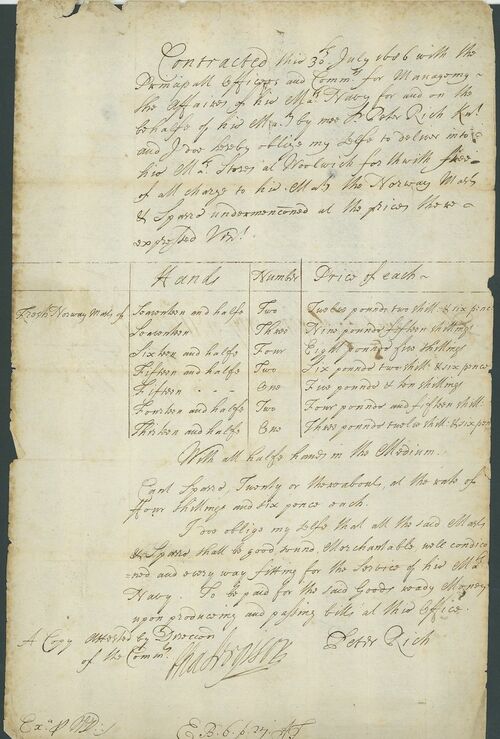 Contracted this 30th July 1686 with the
Principall Officers and Commrs for Managemg
the Affaires of his Mats Navy for and on the
behalfe of his Maty by mee Sr Peter Rich Knt
and I doe hereby oblige my selfe to deliver into
his Mats Stores at Woolwich forthwith free
of all charge to his Maty the Norway Masts
& Sparrs undermenconed at the prices there
expressed Vizt.
Hands Number Price of each
Fresh Norway Masts of Seaventeen and halfe Two Twelve pounds two shill: & six pence
Seaventeen Three Nine pounds fifteen shillings
Sixteen and halfe Four Eight pounds five shillings
Fifteen and halfe Two Six pounds two shill: & six pence
Fifteen One Five pounds & ten shillings
Fourteen and halfe Two Four pounds and fifteen shill:
Thirteen and halfe One Three pounds twelve shill: & six pen
With all halfe hands in the Medium.
Cant Sparrs, Twenty or thereabouts, at the rate of
Four shillings and six pence each.
I doe oblige my selfe that all the said Masts
& Sparrs shall be good sound, Merchantable well condico
=ned and every way fitting for the Service of his Mats
Navy. To be paid for the said Goods ready Money
upon produceing and passing bills at this Office.
A Copy Attested by Direccon
of the Commrs
Peter Rich
E.B. 6. p. 27.